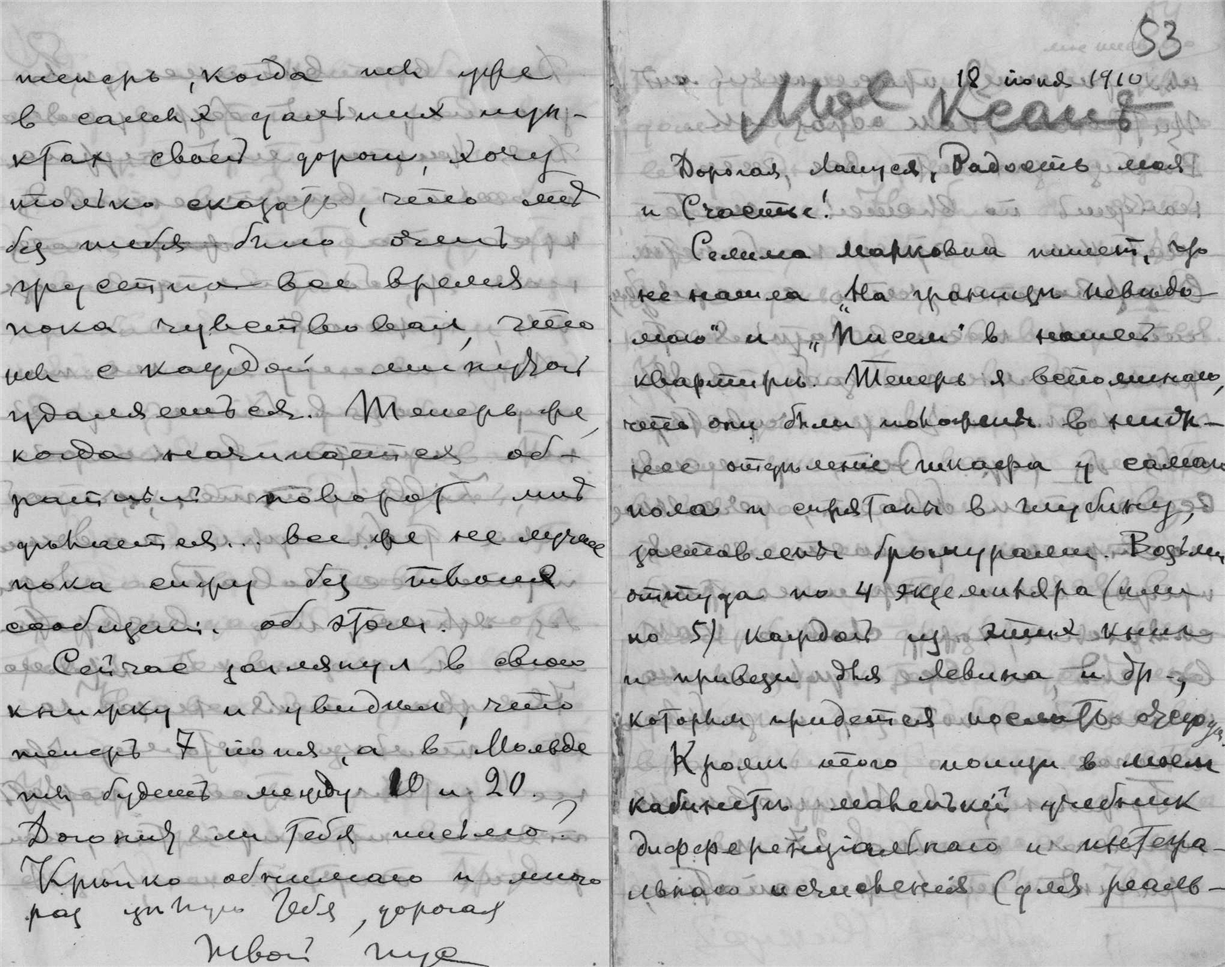 теперь, когда ты уже
в самых дальних пун-
ктах своей дороги, хочу
только сказать, что мнѣ
без тебя было очень
грустно все время
пока чувствовал, что
ты с каждой минутой
удаляешься. Теперь же,
когда начинается об-
ратный поворот, мнѣ
дѣлается... все же не лучше
пока сижу без твоих
сообщений об этом.
Сейчас заглянул в свою
книжку и увидѣл, что
теперь 7 iюня, а в Мольде
ты будешь между 10 и 20.
Догонит ли тебя письмо?
Крѣпко обнимаю и много
раз цѣлую тебя, дорогая
Твой
53
18 iюня 1910
Моя Ксанѣ
Дорогая, Лапуся, Радость моя
и Счастье!
Селима Марковна пишет, что
не нашла „На границѣ невѣдо-
маго" и „Писем" в нашей
квартирѣ. Теперь я вспоминаю,
что они были положены в ниж-
нее отдѣленiе шкафа у самаго
пола и спрятаны в глубину,
заставлены брошурами. Возьми
оттуда по 4 экземпляра (или
по 5) каждой из этих книг
и привези для Левина и др.,
которым придется послать
Кромѣ того поищи в моем
кабинетѣ маленькiй учебник
дифференцiальнаго и интегра-
льнаго исчисления (для реаль-